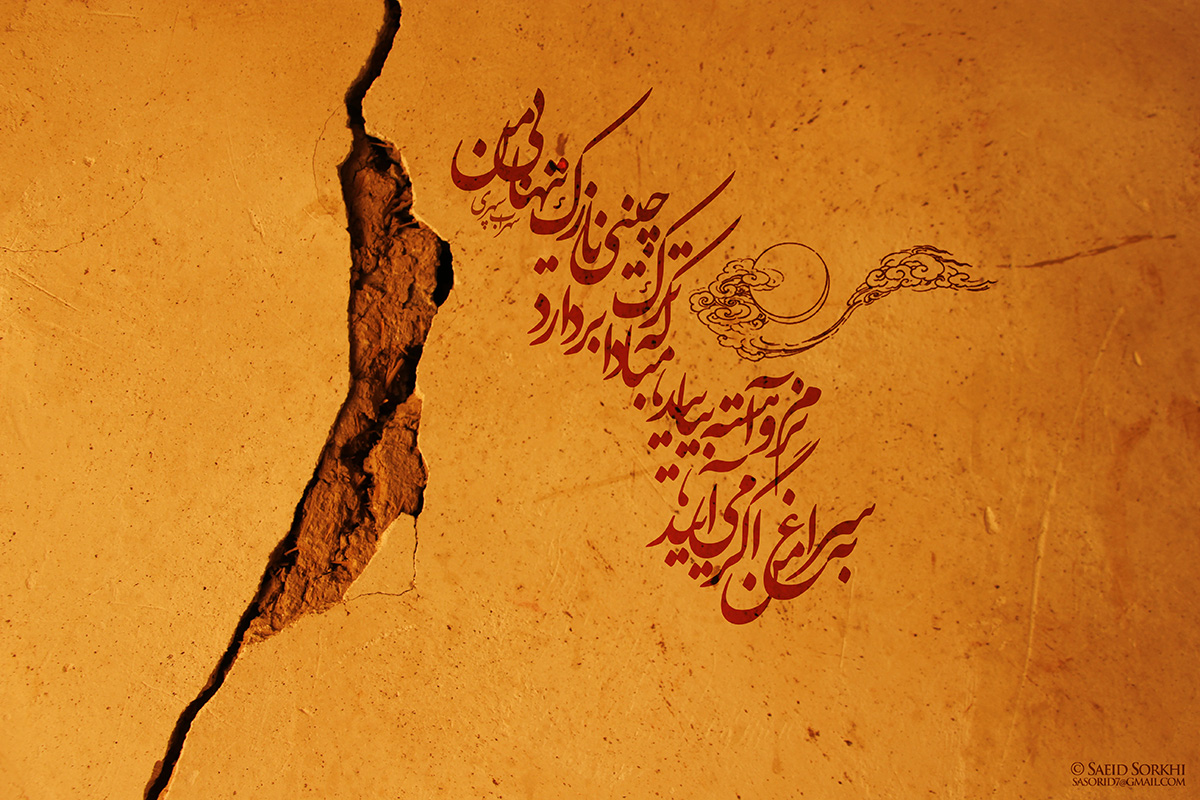 به سراغ من اگر می آیید
نرم و آهسته بیایید
مبادا که ترک بردارد
چینی نازک تنهایی من
سهراب سپهری
© SAEID SORKHI
SASORID7@GMAIL.COM